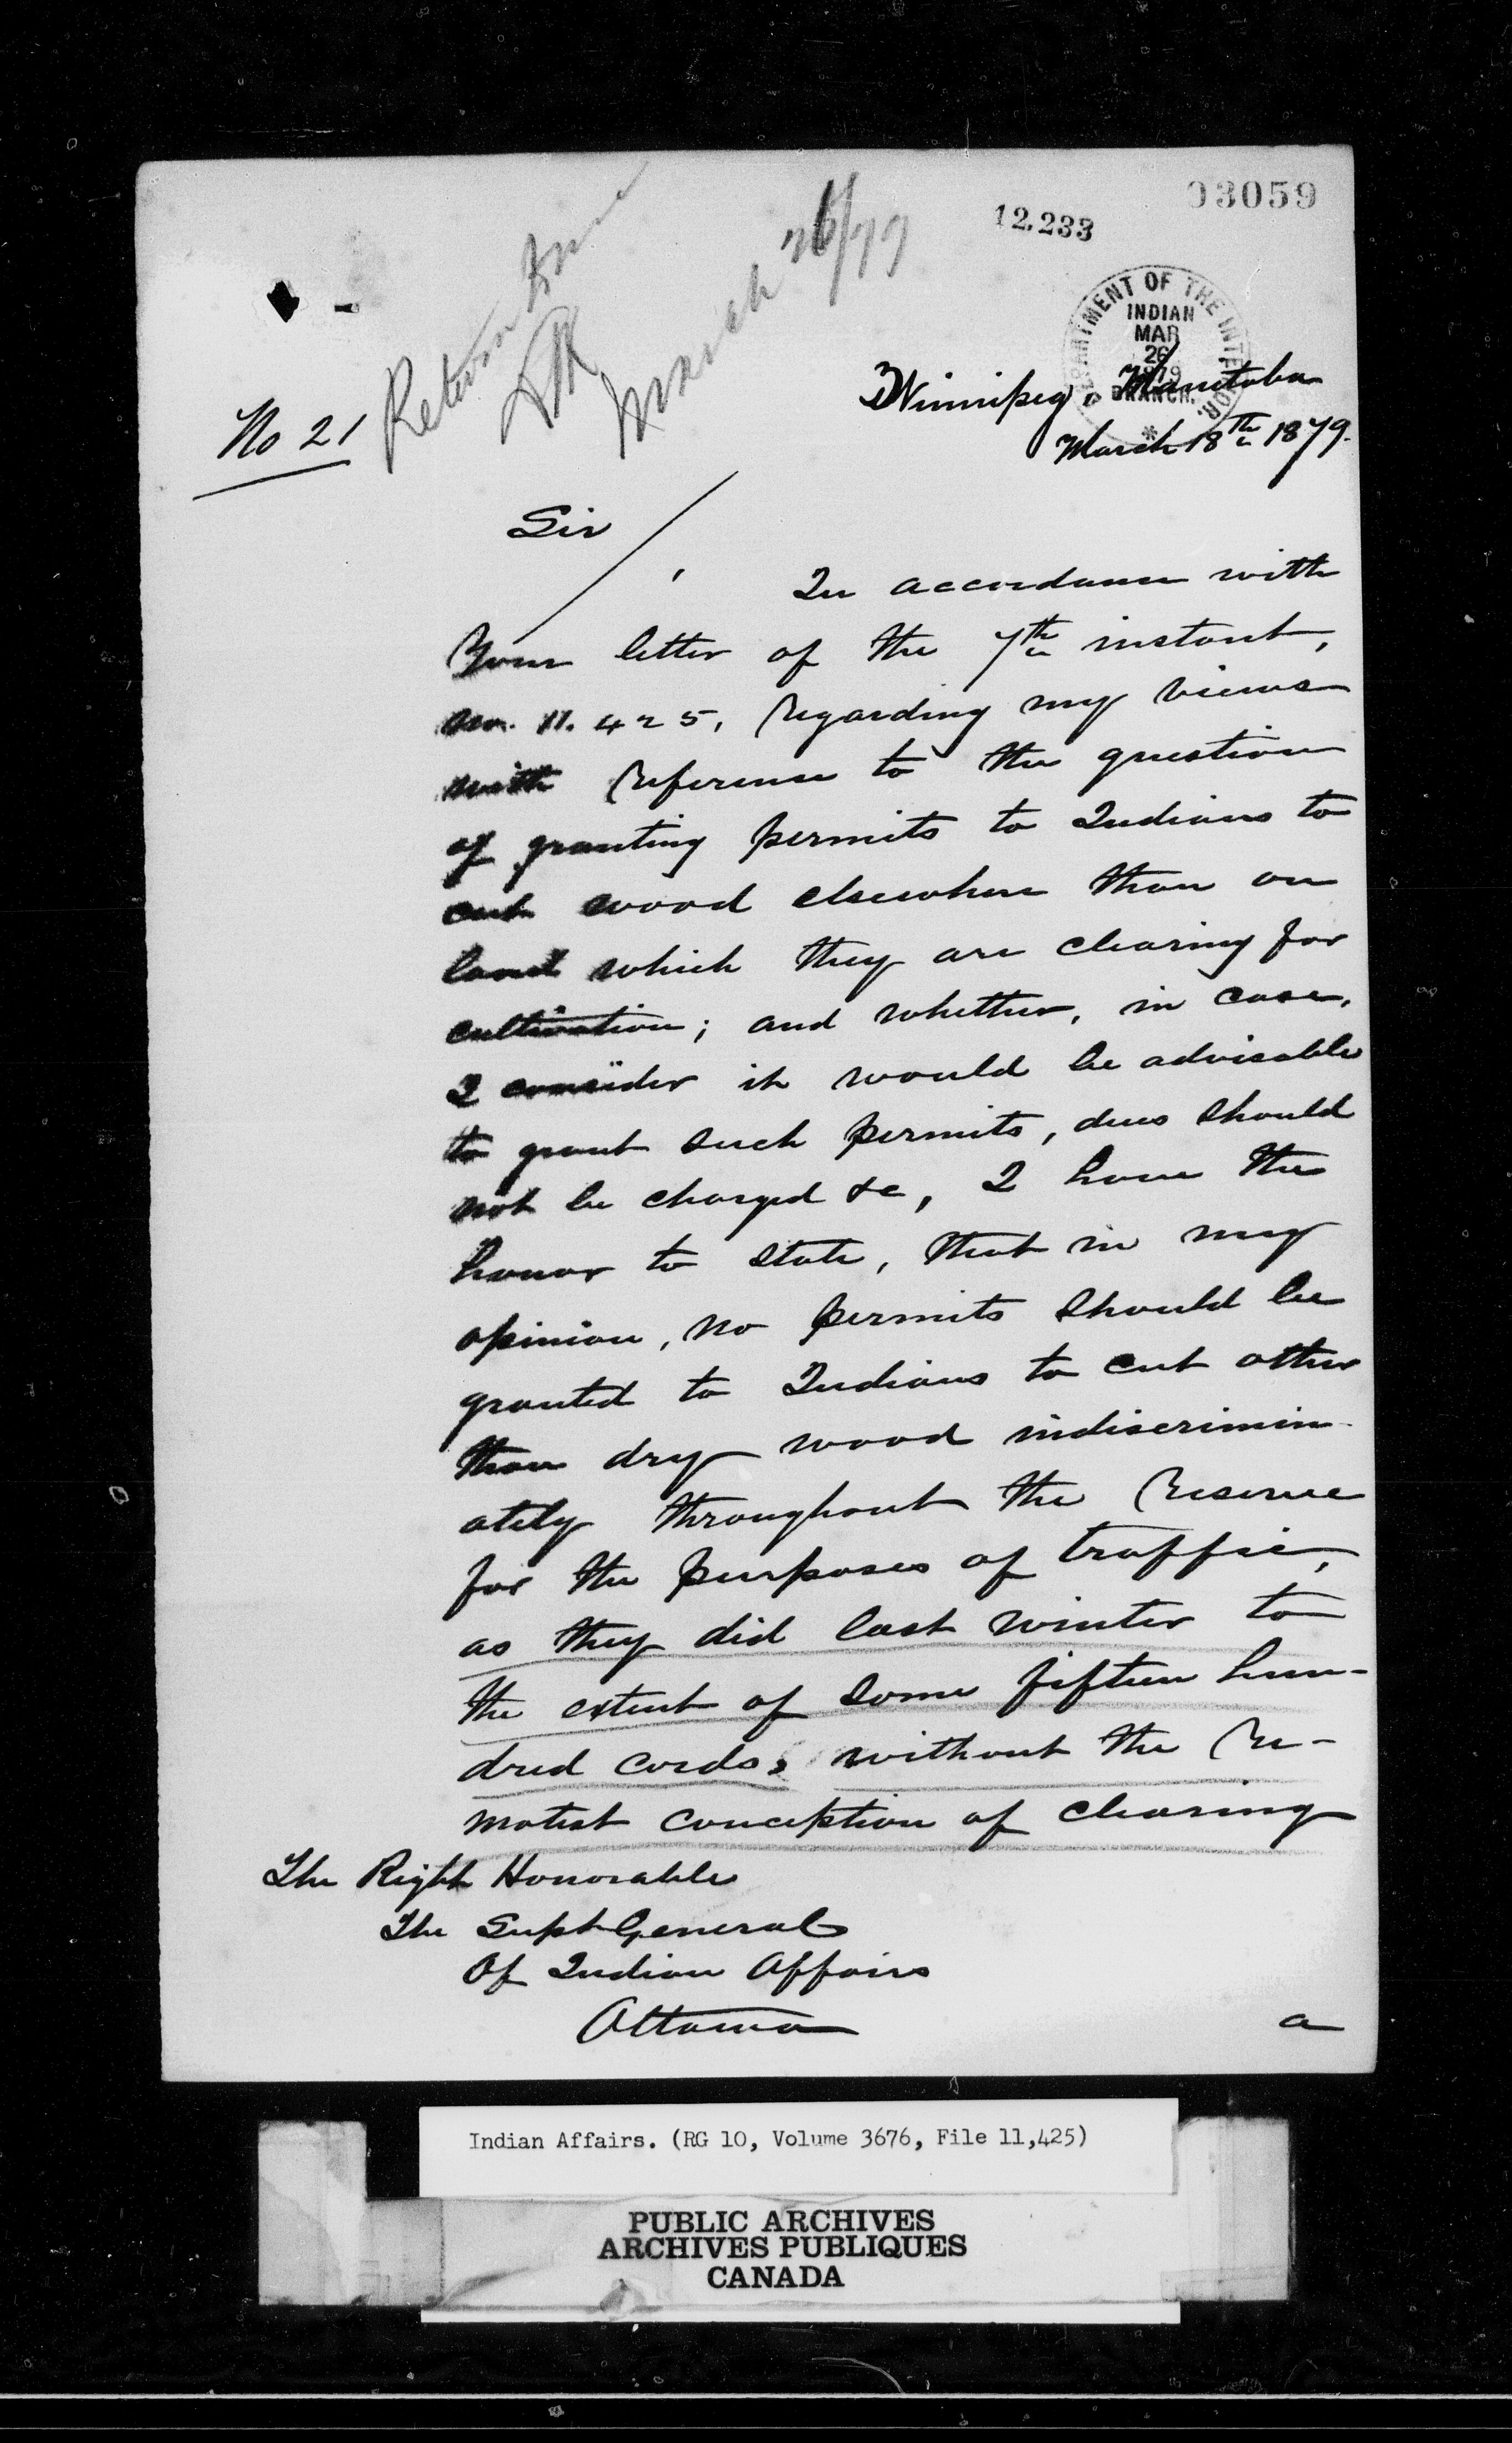 03059
12,233
DEPARTMENT OF THE INTERIOR.
INDIAN
MAR
26
1879
BRANCH.
Return
March 26/79
No 21
Winnipeg, Manitoba
March 18th 1879.
Sir,
In accordance with
Your letter of the 7th instant,
no. 11.425, regarding my views
with reference to the question
of granting permits to Indians to
cut wood elsewhere than on
land which they are clearing for
cultivation; and whether, in case,
I consider it would be advisable
to grant such permits, dues should
not be charged &c, I have the
honor to state, that in my
opinion, no permits should be
granted to Indians to cut other
than dry wood indiscrimin-
ately throughout the Reserve
for the purposes of traffic,
as they did last winter to
the extent of some fifteen hun-
dred cords, without the re-
motest conception of clearing
The Right Honorable
The Supt General
Of Indian Affairs
Ottawa
a
Indian Affairs. (RG 10, Volume 3676, File 11,425)
PUBLIC ARCHIVES
ARCHIVES PUBLIQUES
CANADA